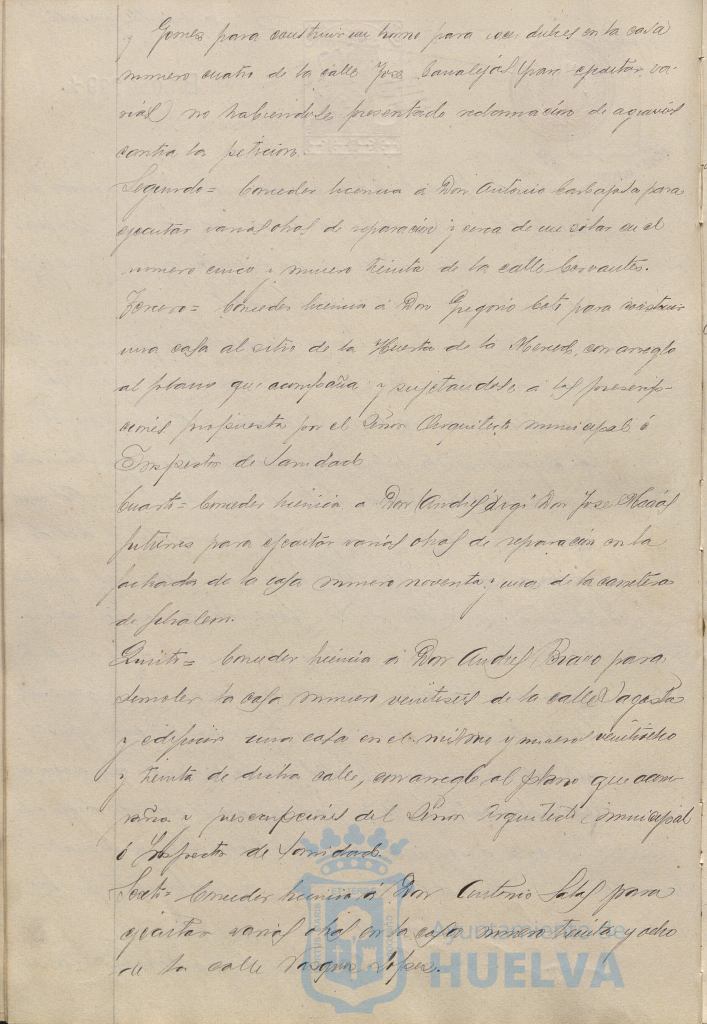 y Gomez para construir un horno para cocer dulces en la casa
numero cuatro de la calle Jose Canalejas (para ejecutar va-
rias) no habiendose presentado reclamacion de agravios
contra la peticion.
Segundo = Conceder licencia á Don Antonio Carbajal para
ejecutar varias obras de reparacion y cerca de un solar en el
numero cinco y numero treinta de la calle Cervantes.
Tercero = Conceder licencia á Don Gregorio para construir
una casa al sitio de la Huerta de la Merced, con arreglo
al plano que acompaña y sujetandose á las prescrip-
ciones propuesta por el Señor Arquitecto municipal é
Inspector de Sanidad
Cuarto = Conceder licencia a Don Andres Don Jose
para ejecutar varias obras de reparacion en la
fachada de la casa numero noventa y una de la carretera
de Gibraleon.
Quinto = Conceder licencia á Don Andres Bravo para
demoler la casa numero veintiseis de la calle Sagasta
y edificar una casa en el mismo y numeros veintiocho
y treinta de dicha calle, con arreglo al plano que acom-
paña y prescripciones del Señor Arquitecto municipal
é Inspector de Sanidad.
Sexto = Conceder licencia á Don Antonio Salas para
ejecutar varias obras en la casa numero treinta y ocho
de la calle Vazquez Lopez.
Ayuntamiento de
HUELVA